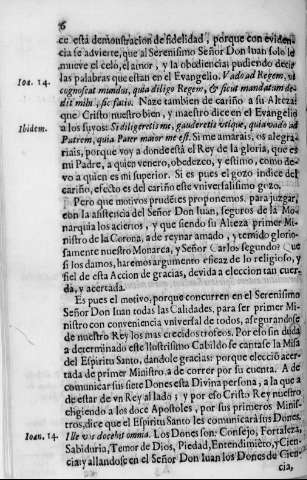 6
ce esta demonstracion de fidelidad, porque con eviden-
cia se advierte, que al Serenisimo Señor Don Iuan solo le
mueve el celo, el amor, y la obediencia; pudiendo decir
las palabras que estan en el Evangelio. Vado ad Regem, ut
Ioa. 14.
cognoscat mundus, quia diligo Regem, & sicut mandatum de-
dit mihi, sic facio. Naze tambien de cariño a su Alteza;
que Christo nuestro bien, y maestro dice en el Evangelio
Ibidem.
a los suyos: Si diligeretis me, gauderetis utique, quia vado ad
Patrem, quia Pater maior me est. Si me amarais, os alegra-
riais, porque voy a donde está el Rey de la gloria, que es
mi Padre, a quien venero, obedezco, y estimo, como de-
vo a quien es mi superior. Si es pues el gozo indice del
cariño, efecto es del cariño este vniversalisimo gozo.
Pero que motivos prudētes proponemos, para juzgar,
con la asistencia del Señor Don Iuan, seguros de la Mo-
narquia los aciertos, y que siendo su Alteza primer Mi-
nistro de la Corona, a de reynar amado, y temido glorio-
samente nuestro Monarca, y Señor Carlos segundo? Que
si los damos, haremos argumento eficaz de lo religioso, y
fiel de esta Accion de gracias, devida a eleccion tan cuer-
da, y acertada.
Es pues el motivo, porque concurren en el Serenisimo
Señor Don Iuan todas las Calidades, para ser primer Mi-
nistro con conveniencia vniversal de todos, asegurandose
de nuestro Rey los mas crecidos trofeos. Por eso sin duda
a determinado este Ilustrisimo Cabildo se cantase la Misa
del Espiritu Santo, dandole gracias: porque eleccio acer-
tada de primer Ministro, a de correr por su cuenta. A de
comunicar sus siete Dones esta Divina persona, a la que a
de estar de vn Rey al lado; y por eso Cristo Rey nuestro
eligiendo a los doce Apostoles, por sus primeros Minis-
tros, dice que el Espiritu Santo les comunicará sus Dones.
Ioan. 14.
Ille vos docebit omnia. Los Dones son: Consejo, Fortaleza,
Sabiduria, Temor de Dios, Piedad, Entendimiēto, y Cien-
cia: y allandose en el Señor Don Iuan los Dones de Cien-
cia,